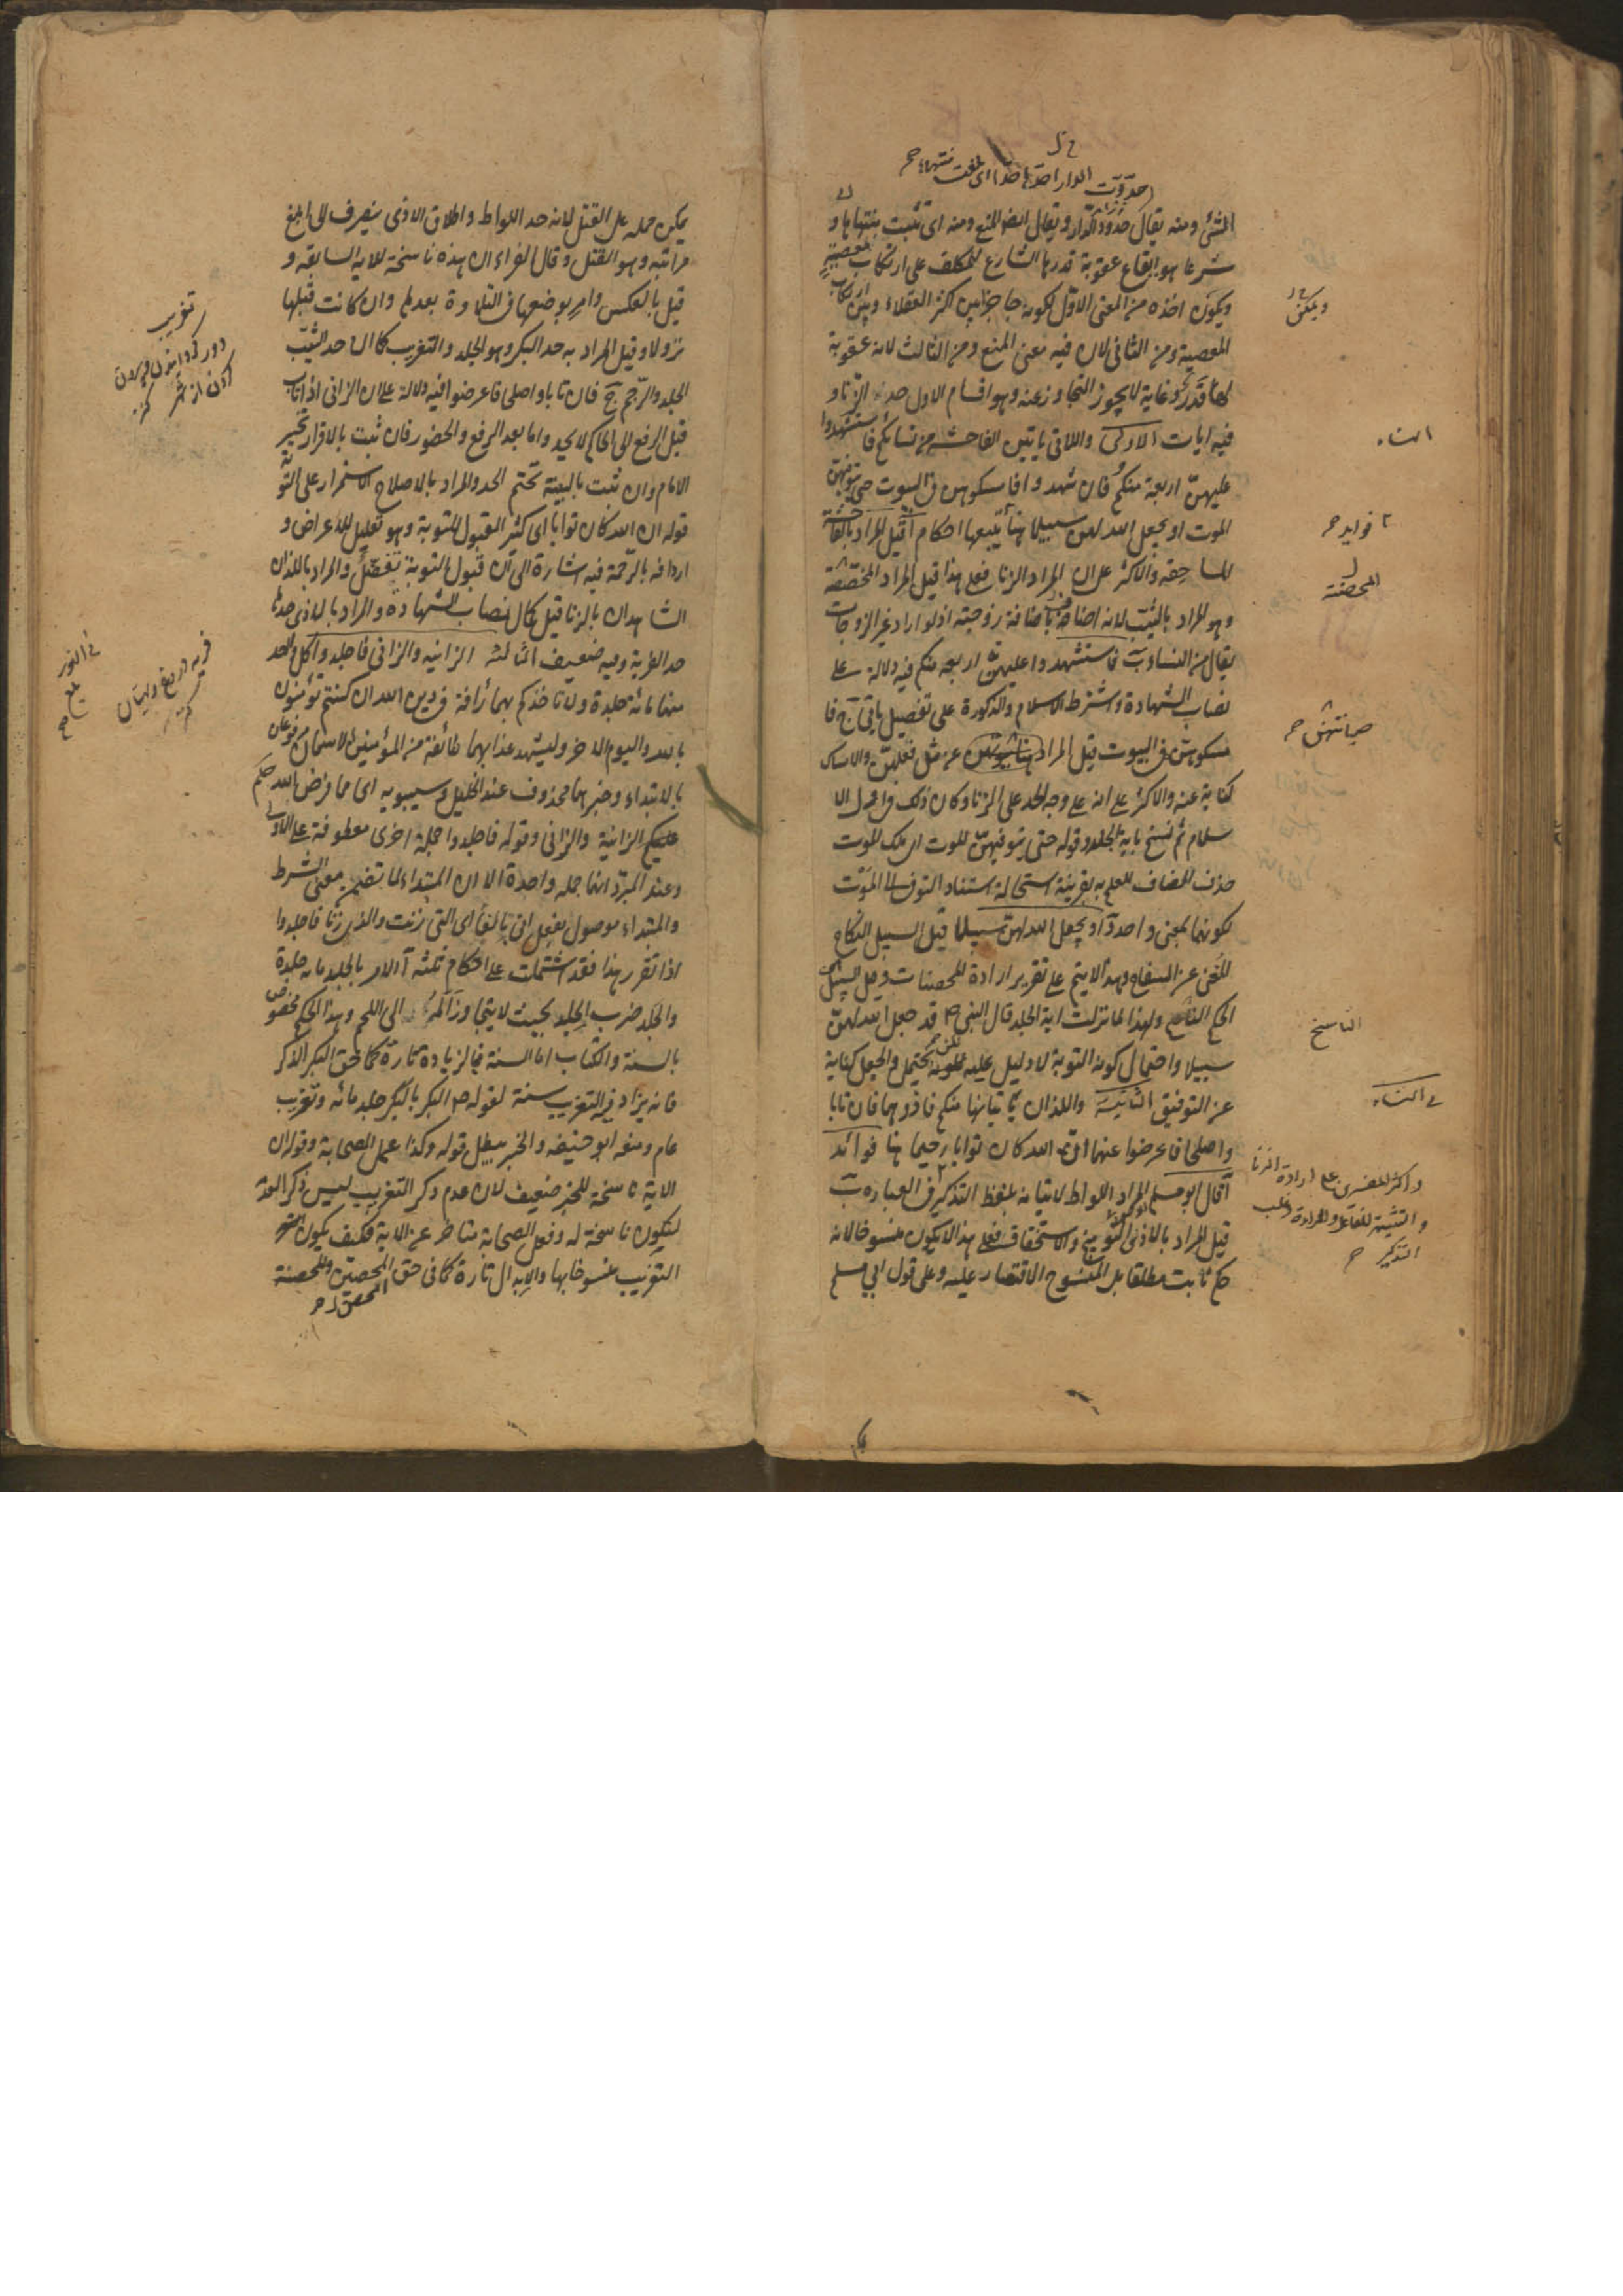 حدّدت الدار احدّها حدّا ای بلغت منتهاه
الشئ ومنه يقال حدود الدار ويقال ايضا للمنع ومنه اى تثبت منتهاها و
شرعا هو ايقاع عقوبة قدرها الشارع للمكلف على ارتكاب معصية
ويكون اخذه من المعنى الاول لكونه حاجزا بين اكثر العقلاء وبين ارتكاب
المعصية ومن الثانى لان فيه معنى المنع ومن الثالث لانه عقوبة
لها قدر وغاية لا يجوز التجاوز عنه وهو اقسام الاول حد الزنا و
فيه ايات الاولى واللاتى ياتين الفاحشة من نسائكم فاستشهدوا
عليهن اربعة منكم فان شهدوا فامسكوهن فى البيوت حتى يتوفيهن
الموت او يجعل الله لهن سبيلا هنا يتبعها احكام آ قيل المراد بالفاحشة
المساحقة والاكثر على ان المراد الزنا فعلى هذا قيل المراد المختصة
وهو المراد بالثيب لانه اضافهن اضافة زوجته اذ لو اراد غير الزوجات
يقال من النساء ب فاستشهدوا عليهن اربعة منكم فيه دلالة على
نصاب الشهادة واشترط الاسلام والذكورة على تفصيل ياتى ج فا
مسكوهن فى البيوت قيل المراد عن مثل فعلهن والامساك
كناية عنه والاكثر على انه على وجه الحد على الزنا وكان ذلك فى اول الا
سلام ثم نسخ باية الجلد وقوله حتى يتوفيهن الموت اى ملك الموت
حذف المضاف للعلم به بقرينة استحالة استناد التوفى الى الموت
لكونهما بمعنى واحد د او يجعل الله لهن سبيلا قيل السبيل النكاح
المغنى عن السفاح وهذا لا يتم على تقرير ارادة المحصنات وقيل السبيل
الحكم الناسخ ولهذا لما نزلت اية الجلد قال النبى ص قد جعل الله لهن
سبيلا واحتمال كونه التوبة لا دليل عليه لكن محتمل والجعل كناية
عن التوفيق الثانية واللذان ياتيانها منكم فاذوهما فان تابا
واصلحا فاعرضوا عنهما ان الله كان توابا رحيما هنا فوائد
آ قال ابو مسلم المراد اللواط لاتيانه بلفظ التذكير فى العبارة ب
قيل المراد بالاذى التوبيخ والاستخفاف فعلى هذا لا يكون منسوخا لانه
حكم ثابت مطلقا بل المنسوخ الاقتصار عليه وعلى قول ابى مسلم
ويمكن
النساء
فوايد
المحصنة
صيانتهن
الناسخ
فى النساء
واكثر المفسرين على ارادة الزنا
والتثنية للفاعل والمراة وغلب
التذكير
يمكن حمله على القتل لانه حد اللواط واطلاق الاذى ينصرف الى ابلغ
مراتبه وهو القتل وقال الفراء ان هذه ناسخة للاية السابقة و
قيل بالعكس وامر بوضعها فى التلاوة بعدها وان كانت قبلها
نزولا وقيل المراد به حد البكر وهو الجلد والتغريب كما ان حد الثيب
الجلد والرجم ج فان تابا واصلحا فاعرضوا فيه دلالة على ان الزانى اذا تاب
قبل الرفع الى الحاكم لا يحد واما بعد الرفع والحضور فان ثبت بالاقرار تخير
الامام وان ثبت بالبينة تحتم الحد والمراد بالاصلاح الاستمرار على التوبة
قوله ان الله كان توابا اى كثير القبول للتوبة وهو تعليل للاعراض و
اردافه بالرحمة فيه اشارة الى ان قبول التوبة تفضل والمراد باللذان
الشاهدان بالزنا قيل كمال نصاب الشهادة والمراد بالاذى حدهما
حد الفرية وفيه ضعيف الثالثة الزانية والزانى فاجلدوا كل واحد
منهما مائة جلدة ولا تاخذكم بهما رأفة فى دين الله ان كنتم تؤمنون
بالله واليوم الاخر وليشهد عذابهما طائفة من المؤمنين الاسمان مرفوعان
بالابتداء وخبرهما محذوف عند الخليل وسيبويه اى مما فرض الله حكم
عليكم الزانية والزانى وقوله فاجلدوا جملة اخرى معطوفة على الاولى
وعند المبرد انهما جملة واحدة الا ان المبتداء لما تضمن معنى الشرط
والمبتداء موصول بفعل اتى بالفاء اى التى زنت والذى زنا فاجلدوا
اذا تقرر هذا فقد اشتملت على احكام ثلثة آ الامر بالجلد مائة جلدة
والجلد ضرب الجلد بحيث لا يتجاوز المه الى اللحم وهذا الحكم مخصوص
بالسنة والكتاب اما السنة فبالزيادة تارة كما فى حق البكر الذكر
فانه يزاد فيه التغريب سنة لقوله ص البكر بالبكر جلد مائة وتغريب
عام ومنعه ابو حنيفة والخبر يبطل قوله وكذا عمل الصحابة وقوله ان
الاية ناسخة للخبر ضعيف لان عدم ذكر التغريب ليس ذكر العدم
ليكون ناسخة له وفعل الصحابة متاخر عن الاية فكيف يكون
التغريب منسوخا بها والابدال تارة كما فى حق المحصن والمحصنة
المحصن
تغريب
دور كردانيدن و بيرون
كردن از شهر
كنز
فرية دروغ و بهتان
كنز
فى النور